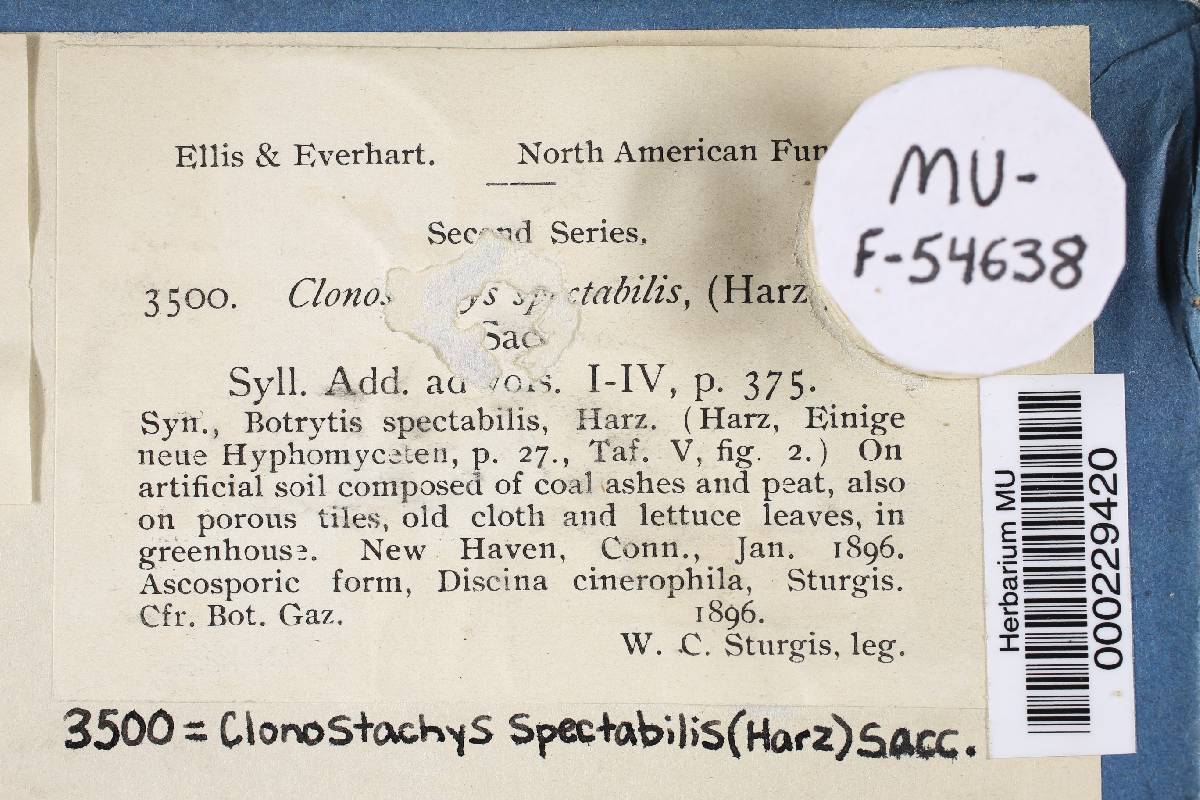 Ellis & Everhart. North American Fun
Second Series.
3500. Clonostachys spectabilis, (Harz
Sacc
Syll. Add. ad vols. I-IV, p. 375.
Syn., Botrytis spectabilis, Harz. (Harz, Einige
neue Hyphomyceten, p. 27., Taf. V, fig. 2.) On
artificial soil composed of coal ashes and peat, also
on porous tiles, old cloth and lettuce leaves, in
greenhouse. New Haven, Conn., Jan. 1896.
Ascosporic form, Discina cinerophila, Sturgis.
Cfr. Bot. Gaz. 1896.
W. C. Sturgis, leg.
3500 = Clonostachys Spectabilis (Harz) Sacc.
MU-
F-54638
Herbarium MU
000229420